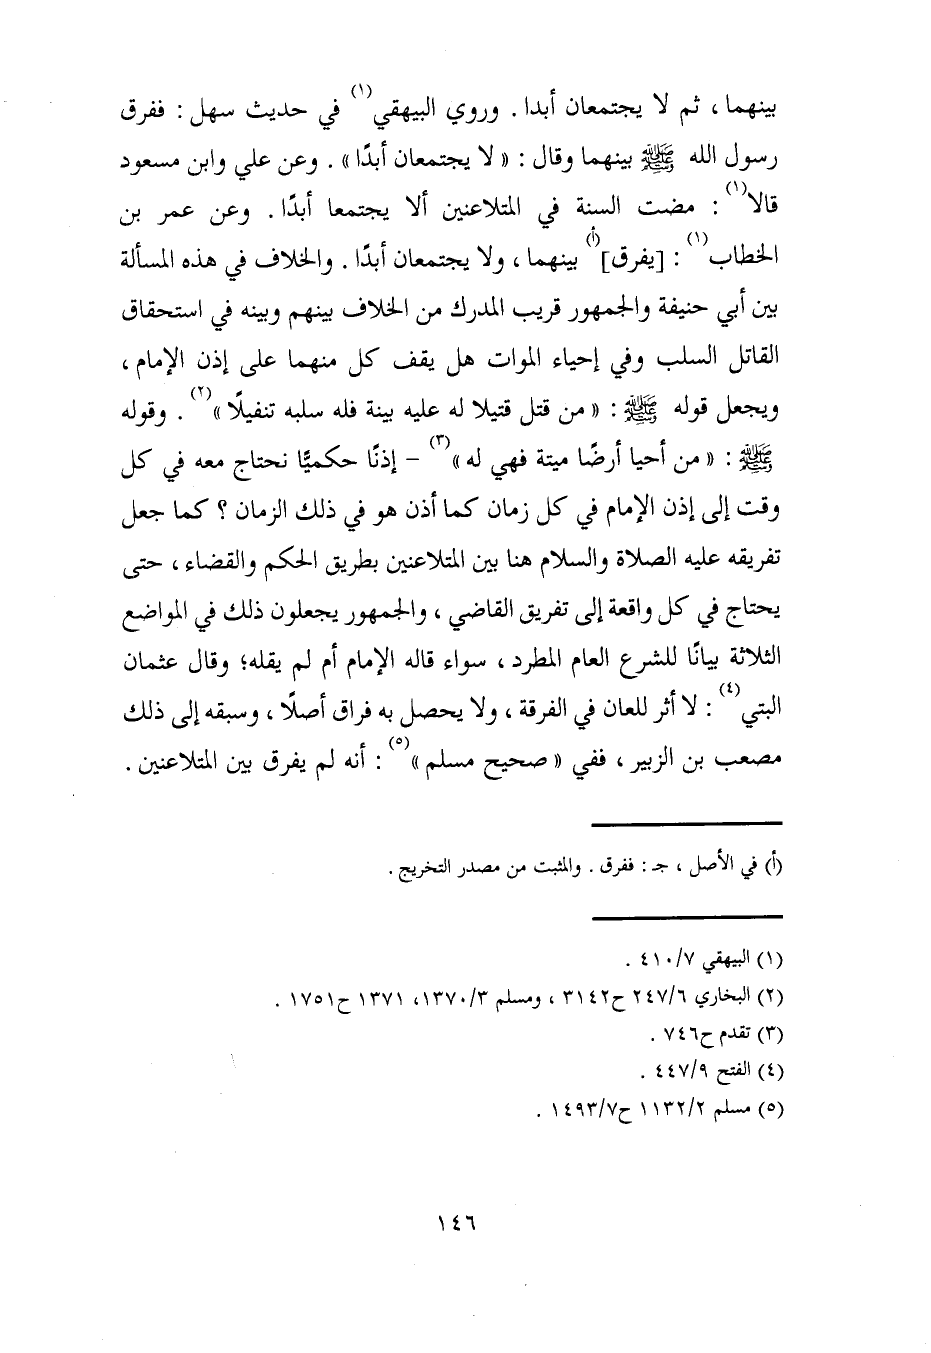 بينهما ، ثم لا يجتمعان أبدا . وروي البيهقي(١) في حديث سهل : ففرق
رسول الله ﷺ بينهما وقال : « لا يجتمعان أبدًا » . وعن علي وابن مسعود
قالا(١) : مضت السنة في المتلاعنين ألا يجتمعا أبدًا . وعن عمر بن
الخطاب(١) : [يفرق](أ) بينهما ، ولا يجتمعان أبدًا . والخلاف في هذه المسألة
بين أبي حنيفة والجمهور قريب المدرك من الخلاف بينهم وبينه في استحقاق
القاتل السلب وفي إحياء الموات هل يقف كل منهما على إذن الإمام ،
ويجعل قوله ﷺ : « من قتل قتيلا له عليه بينة فله سلبه تنفيلًا »(٢) . وقوله
ﷺ : « من أحيا أرضًا ميتة فهي له »(٣) - إذنًا حكميًّا نحتاج معه في كل
وقت إلى إذن الإمام في كل زمان كما أذن هو في ذلك الزمان ؟ كما جعل
تفريقه عليه الصلاة والسلام هنا بين المتلاعنين بطريق الحكم والقضاء ، حتى
يحتاج في كل واقعة إلى تفريق القاضي ، والجمهور يجعلون ذلك في المواضع
الثلاثة بيانًا للشرع العام المطرد ، سواء قاله الإمام أم لم يقله؛ وقال عثمان
البتي(٤) : لا أثر للعان في الفرقة ، ولا يحصل به فراق أصلًا ، وسبقه إلى ذلك
مصعب بن الزبير ، ففي « صحيح مسلم »(٥) : أنه لم يفرق بين المتلاعنين .
(أ) في الأصل ، جـ : ففرق . والمثبت من مصدر التخريج .
(١) البيهقي ٤١٠/٧ .
(٢) البخاري ٢٤٧/٦ ح٣١٤٢ ، ومسلم ١٣٧٠/٣، ١٣٧١ ح١٧٥١ .
(٣) تقدم ح٧٤٦ .
(٤) الفتح ٤٤٧/٩ .
(٥) مسلم ١١٣٢/٢ ح١٤٩٣/٧ .
١٤٦